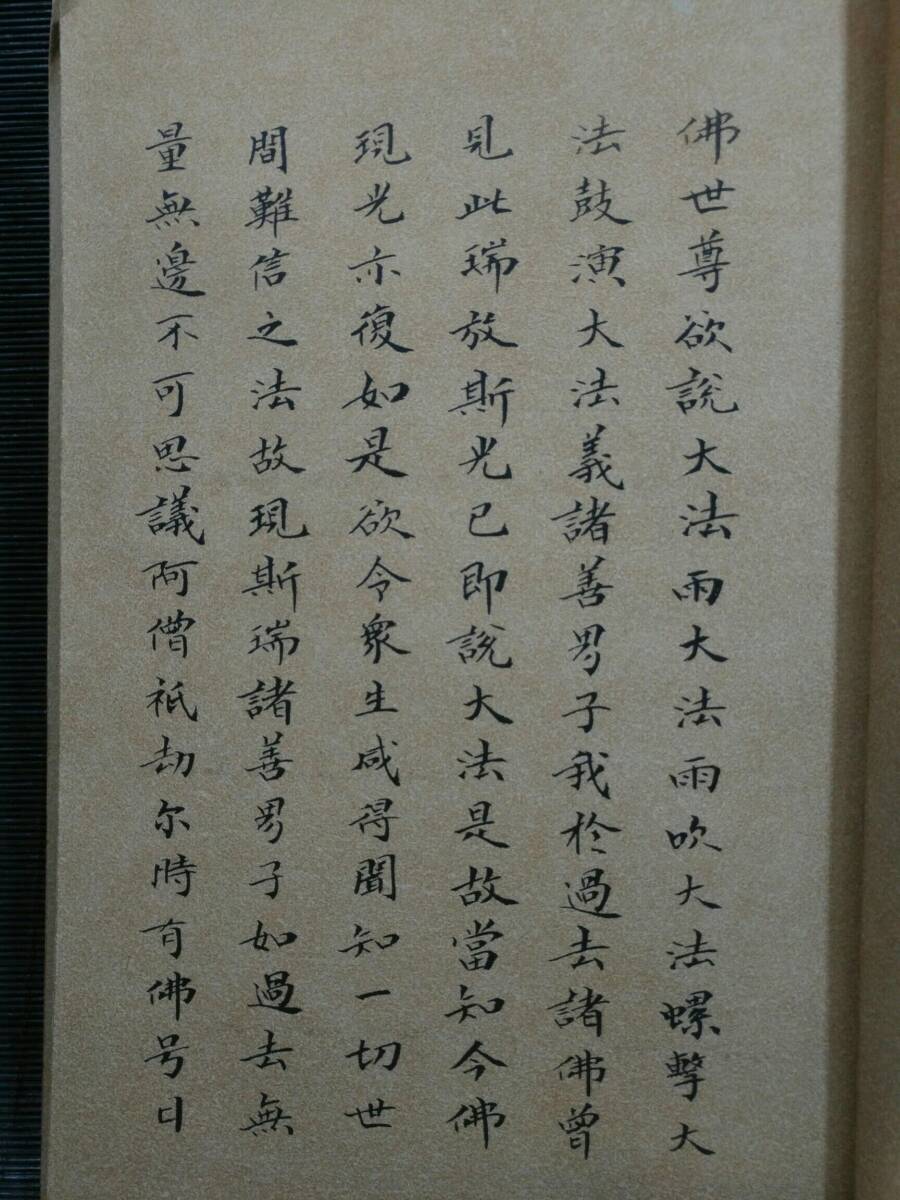 佛世尊欲説大法雨大法雨吹大法螺擊大
法鼓演大法義諸善男子我於過去諸佛曾
見此瑞放斯光已即説大法是故當知今佛
現光亦復如是欲令衆生咸得聞知一切世
間難信之法故現斯瑞諸善男子如過去無
量無邊不可思議阿僧祇劫尒時有佛号日